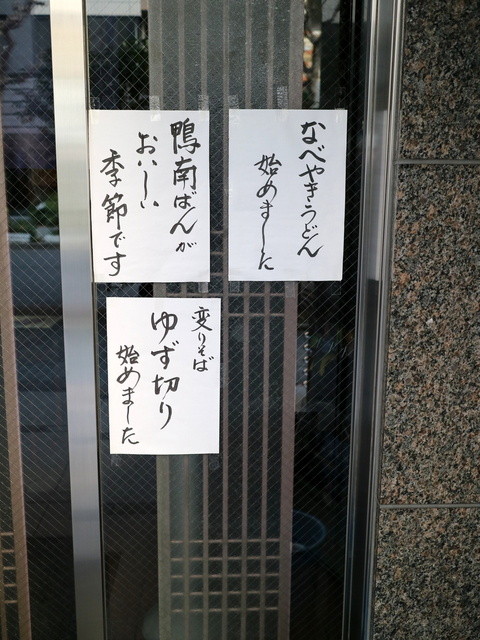 なべやきうどん
始めました
鴨南ばんが
おいしい
季節です
変りそば
ゆず切り
始めました